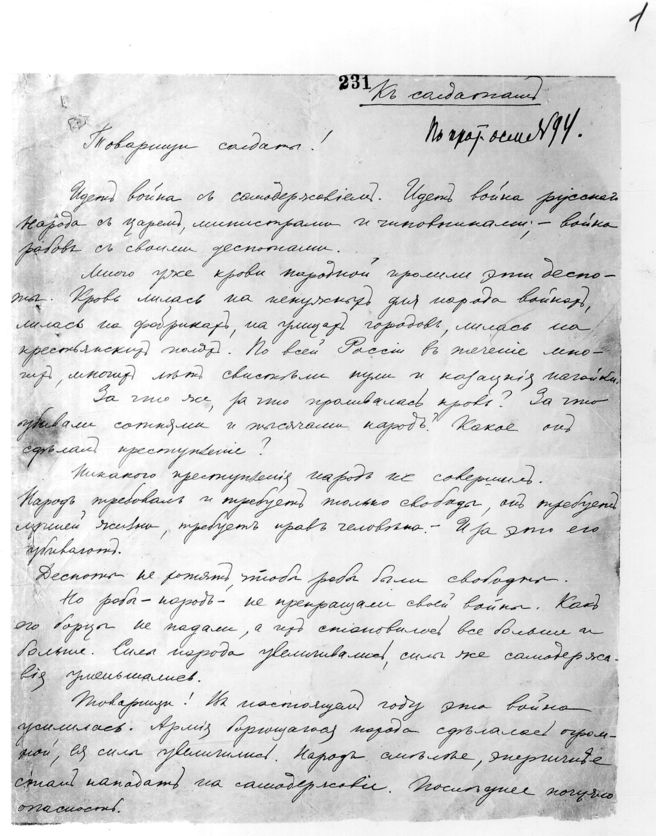 1
231
Къ солдатамъ
Товарищи солдаты!
Идетъ война съ самодержавіемъ. Идетъ война русскаго
народа съ царемъ, министрами и чиновниками, – война
рабовъ съ своими деспотами.
Много уже крови народной пролили эти деспо-
ты. Кровь лилась на ненужныхъ для народа войнахъ,
лилась на фабрикахъ, на улицахъ городовъ, лилась на
крестьянскихъ поляхъ. По всей Россіи въ теченіе мно-
гихъ, многихъ лѣтъ свистѣли пули и казацкія нагайки.
За что же, за что проливалась кровь? За что
убивали сотнями и тысячами народъ? Какое онъ
сдѣлалъ преступленіе?
Никакого преступленія народъ не совершилъ.
Народъ требовалъ и требуетъ только свободы, онъ требуетъ
лучшей жизни, требуетъ правъ человѣка. – И за это его
убиваютъ.
Деспоты не хотятъ, чтобы рабы были свободны.
Но рабы – народъ – не прекращали своей войны. Какъ
его борцы не падали, а ихъ становилось все больше и
больше. Силы народа увеличивались, силы же самодержа-
вія уменьшались.
Товарищи! Въ настоящемъ году эта война
усилилась. Армія борющагося народа сдѣлалась огром-
ной, ея силы увеличились. Народъ смѣлѣе, энергичнѣе
сталъ нападать на самодержавіе. Послѣднее почуяло
опасность.